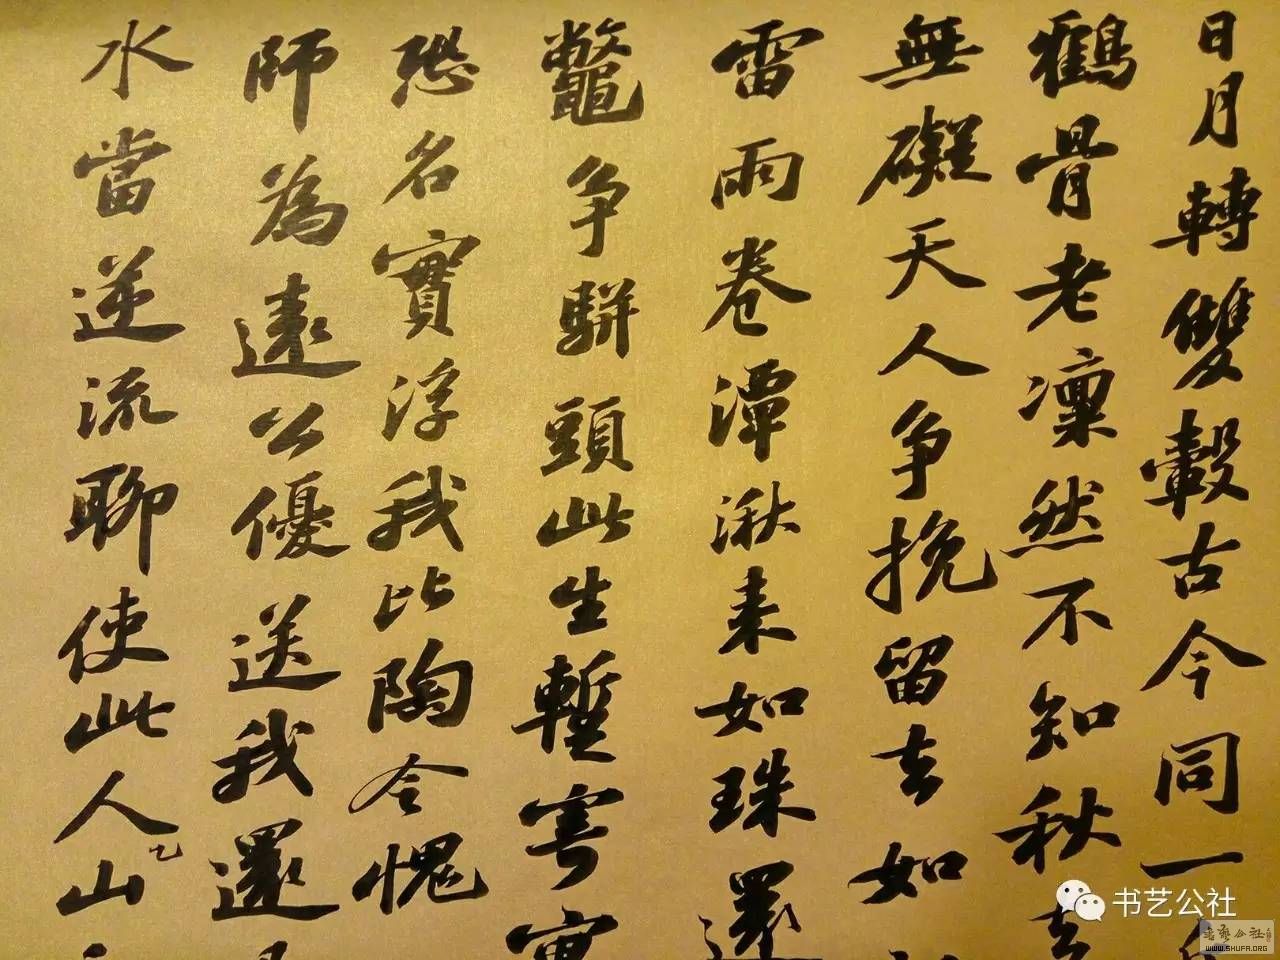 日月轉雙轂古今同一
鶴骨老凛然不知秋去
無礙天人争挽留去如
雷雨卷潭湫来如珠還
鼈争駢頭此生暫寄寓
恐名實浮我比陶令愧
師為遠公優送我還
水當逆流聊使此人山
书艺公社
書艺公社
WWW.SHUFA.ORG